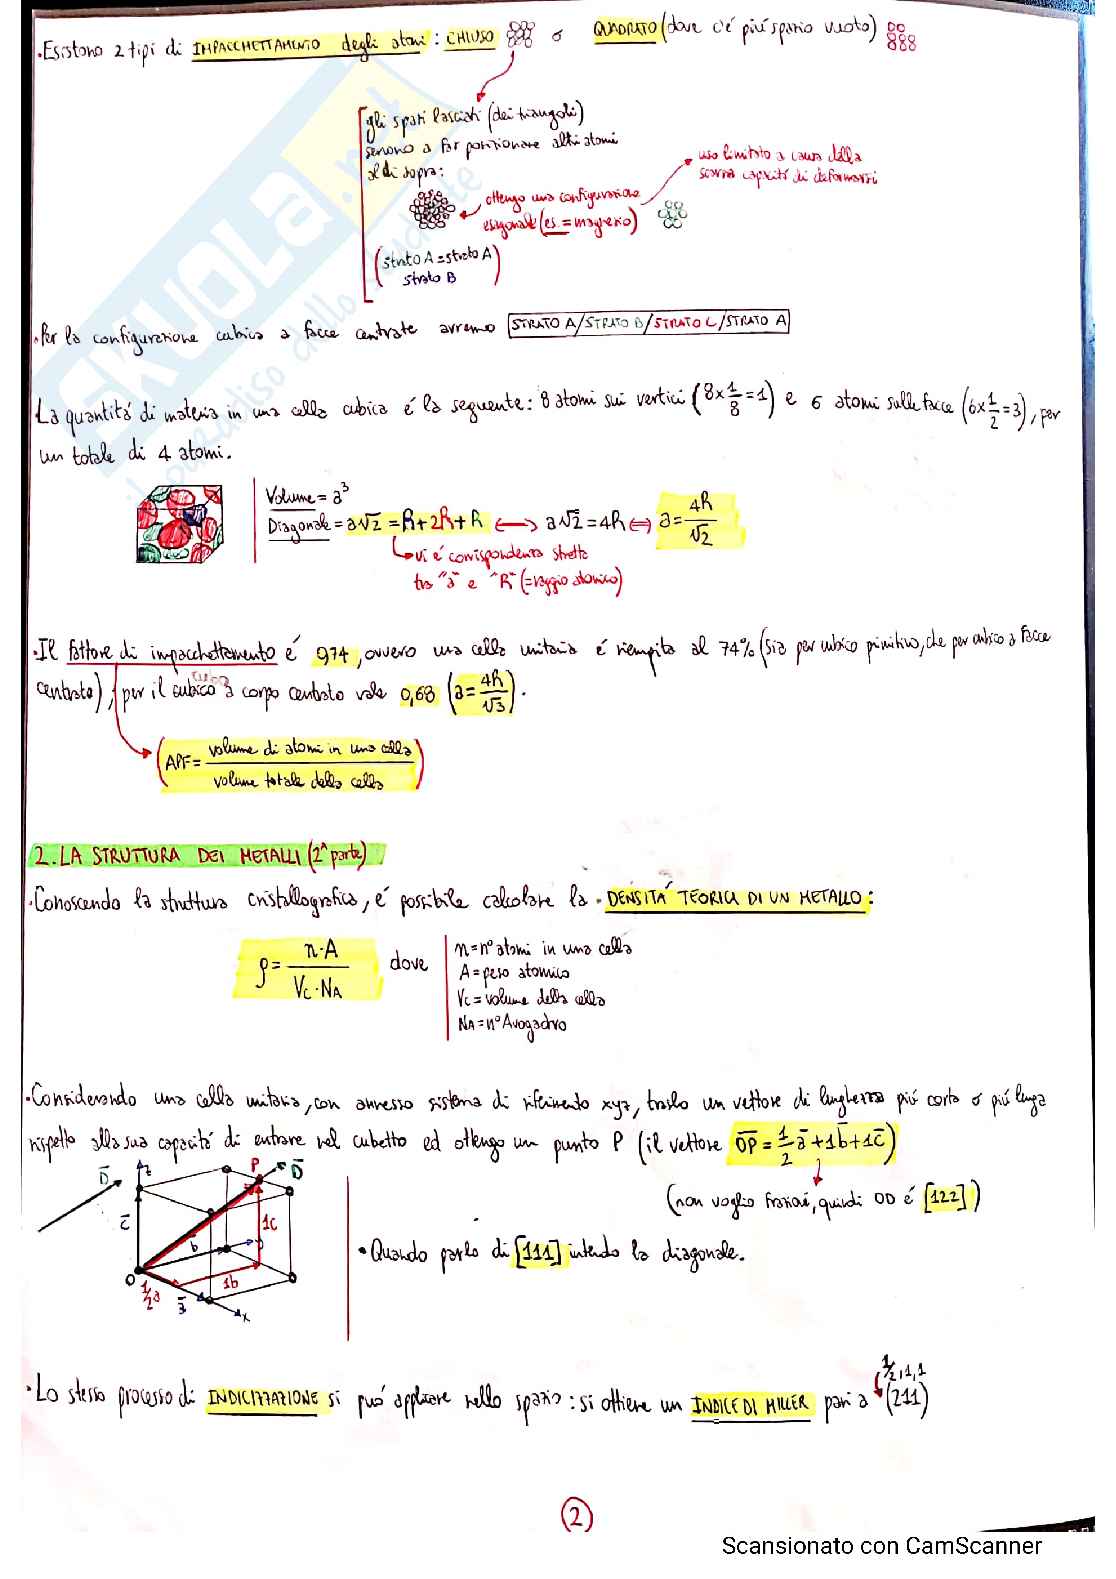 ·Esistono 2 tipi di IMPACCHETTAMENTO degli atomi: CHIUSO o QUADRATO (dove c'é piú spazio vuoto)
gli spazi lasciati (dei triangoli)
servono a far posizionare altri atomi
al di sopra:
uso limitato a causa della
scarsa capacitá di deformarsi
ottengo una configurazione
esagonale (es = magnesio)
(strato A = strato A)
strato B
·Per la configurazione cubica a facce centrate avremo STRATO A/STRATO B/STRATO C/STRATO A
La quantitá di materia in una cella cubica é la seguente: 8 atomi sui vertici (8×1/8=1) e 6 atomi sulle facce (6×1/2=3), per
un totale di 4 atomi.
Volume = a³
Diagonale = a√2 = R+2R+R ⟷ a√2 = 4R ⟺ a = 4R/√2
vi é corrispondenza stretta
tra "a" e "R" (=raggio atomico)
·Il fattore di impacchettamento é 0,74, ovvero una cella unitaria é riempita al 74% (sia per cubico primitivo, che per cubico a facce
centrate), per il cubico a corpo centrato vale 0,68 (a = 4R/√3).
(APF = volume di atomi in una cella / volume totale della cella)
2. LA STRUTTURA DEI METALLI (2ª parte)
·Conoscendo la struttura cristallografica, é possibile calcolare la ·DENSITÁ TEORICA DI UN METALLO:
ρ = n·A / Vc·NA dove
n = n° atomi in una cella
A = peso atomico
Vc = volume della cella
NA = n° Avogadro
·Considerando una cella unitaria, con annesso sistema di riferimento xyz, traslo un vettore di lunghezza piú corta o piú lunga
rispetto alla sua capacitá di entrare nel cubetto ed ottengo un punto P (il vettore OP = 1/2 a + 1b + 1c)
(non voglio frazioni, quindi OD é [122])
D z P D
c 1c
b
O 1b
1/2 a a x
• Quando parlo di [111] intendo la diagonale.
(1/2,1,1
·Lo stesso processo di INDICIZZAZIONE si puó applicare nello spazio: si ottiene un INDICE DI MILLER pari a (211)
2
Scansionato con CamScanner
SKUOLA.net
il paradiso dello studente